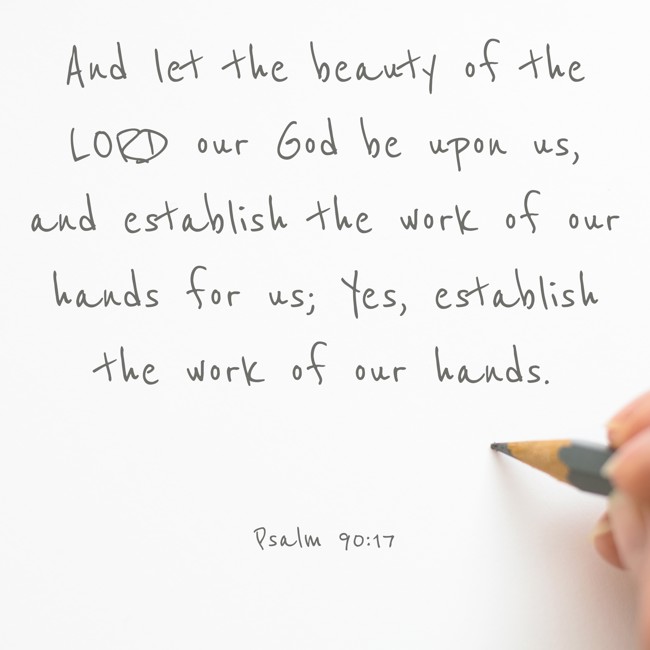 And let the beauty of the
LORD our God be upon us,
and establish the work of our
hands for us; Yes, establish
the work of our hands.
Psalm 90:17